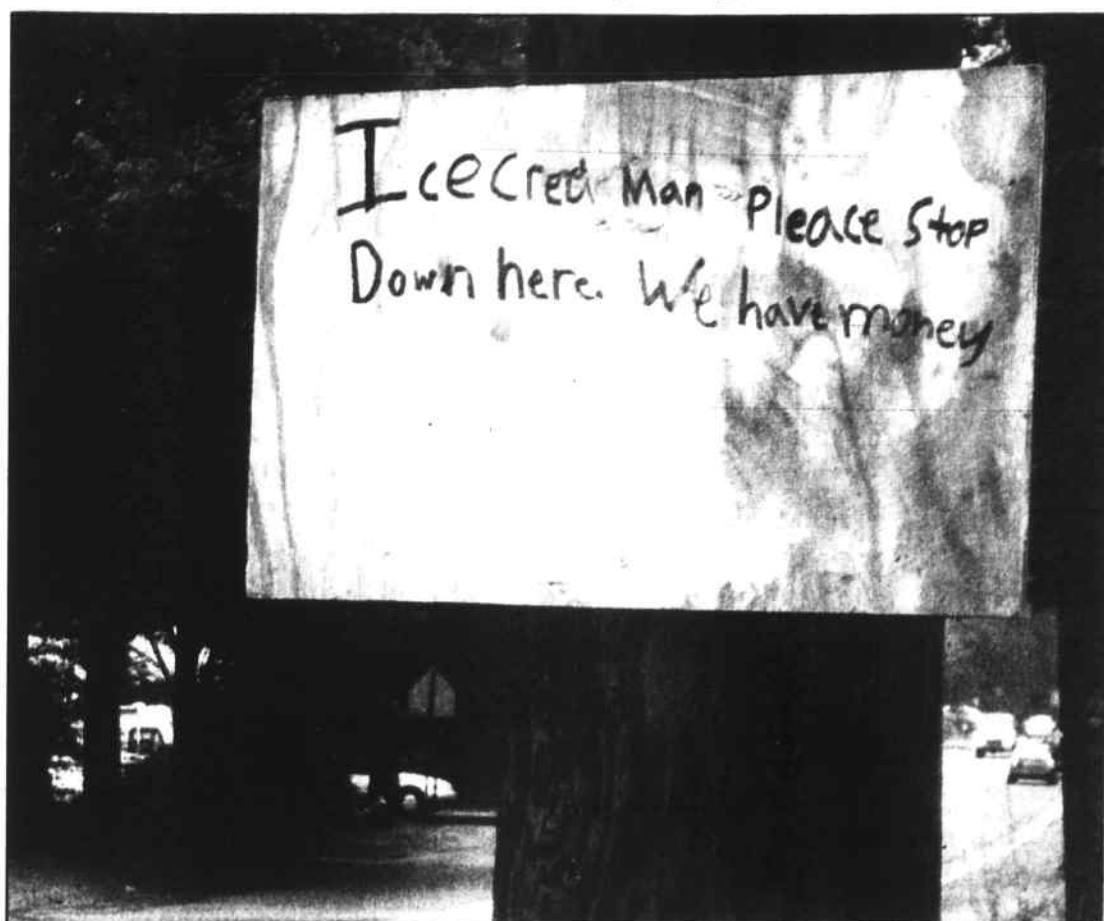 Icecrea Man Pleace Stop
Down here. We have money